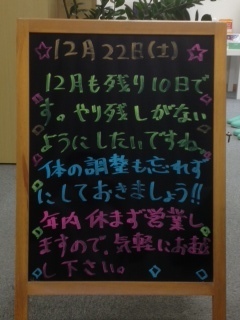 12月22日(土)
12月も残り10日で
す。やり残しがない
ようにしたいですね。
体の調整も忘れず
にしておきましょう!!
年内休まず営業し
ますので、気軽にお越
し下さい。